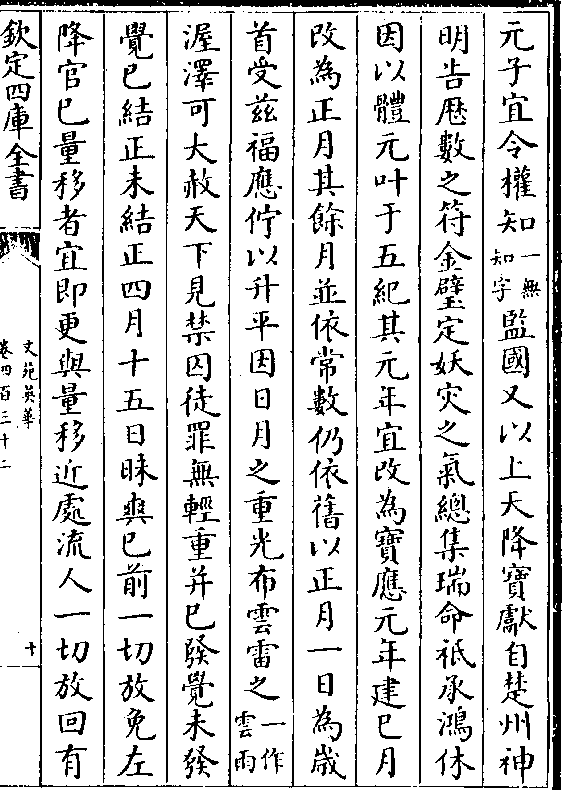 元子宜令權知一無知字監國又以上天降寳獻自楚州神
明告歴數之符金璧定妖灾之氣總集瑞命祗承鴻休
因以體元叶于五紀其元年宜改為寳應元年建巳月
改為正月其餘月並依常數仍依舊以正月一日為歲
首受兹福應佇以升平因日月之重光布雲雷之一作雲雨
渥澤可大赦天下見禁囚徒罪無輕重并已發覺未發
覺已結正未結正四月十五日昧爽已前一切放免左
降官已量移者宜即更與量移近處流人一切放回有
欽定四庫全書
文苑英華
卷四百三十二
十